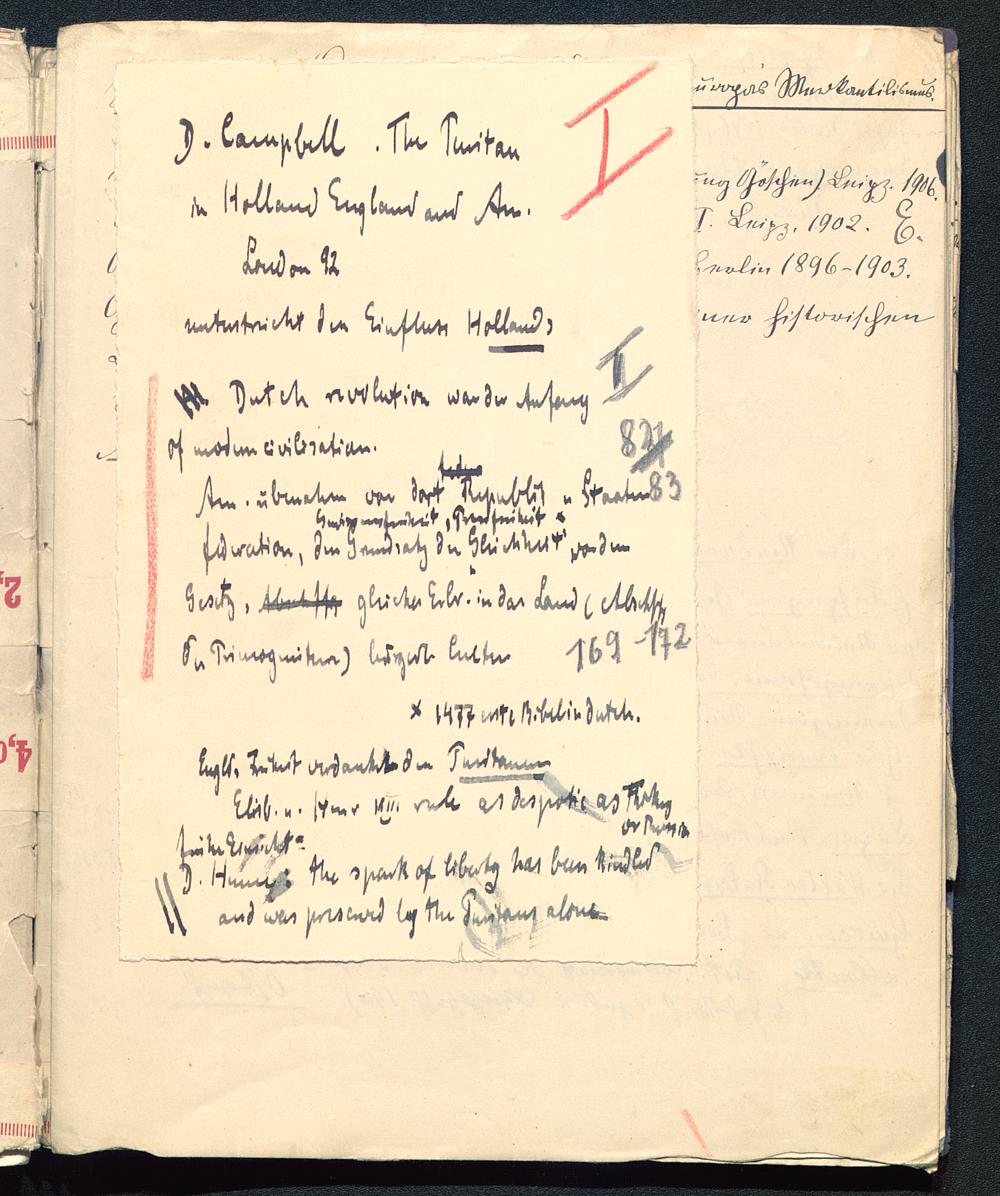 uropas Merkantilismus.
ung Göschen) Leipz. 1906.
I. Leipz. 1902. E.
Berlin 1896-1903.
iner historischen
I
D. Campbell. The Puritan
in Holland England and Am.
London 92
unterstricht den Einfluss Hollands
II
Dutch revolution war der Anfang
of modern civilisation.
82
83
Am. übernahm von dort Republik u Staaten
Gewissensfreiheit, Pressfreiheit x
föderation, den Grundsatz der Gleichheit vor dem
Gesetz, gleiches Erbr. in das Land (Abschfg
der Primogenitur) bürgerl. Culten
169-172
x 1477 erste Bibel in dutch.
Engl. Freiheit verdankt den Puritanern
Elisb. u. rule as despotic as Thurkey
or Russia
frühe Einsicht
D. Hume: the spark of liberty has been kindled
and was preserved by the Puritans alone
2,
4,0